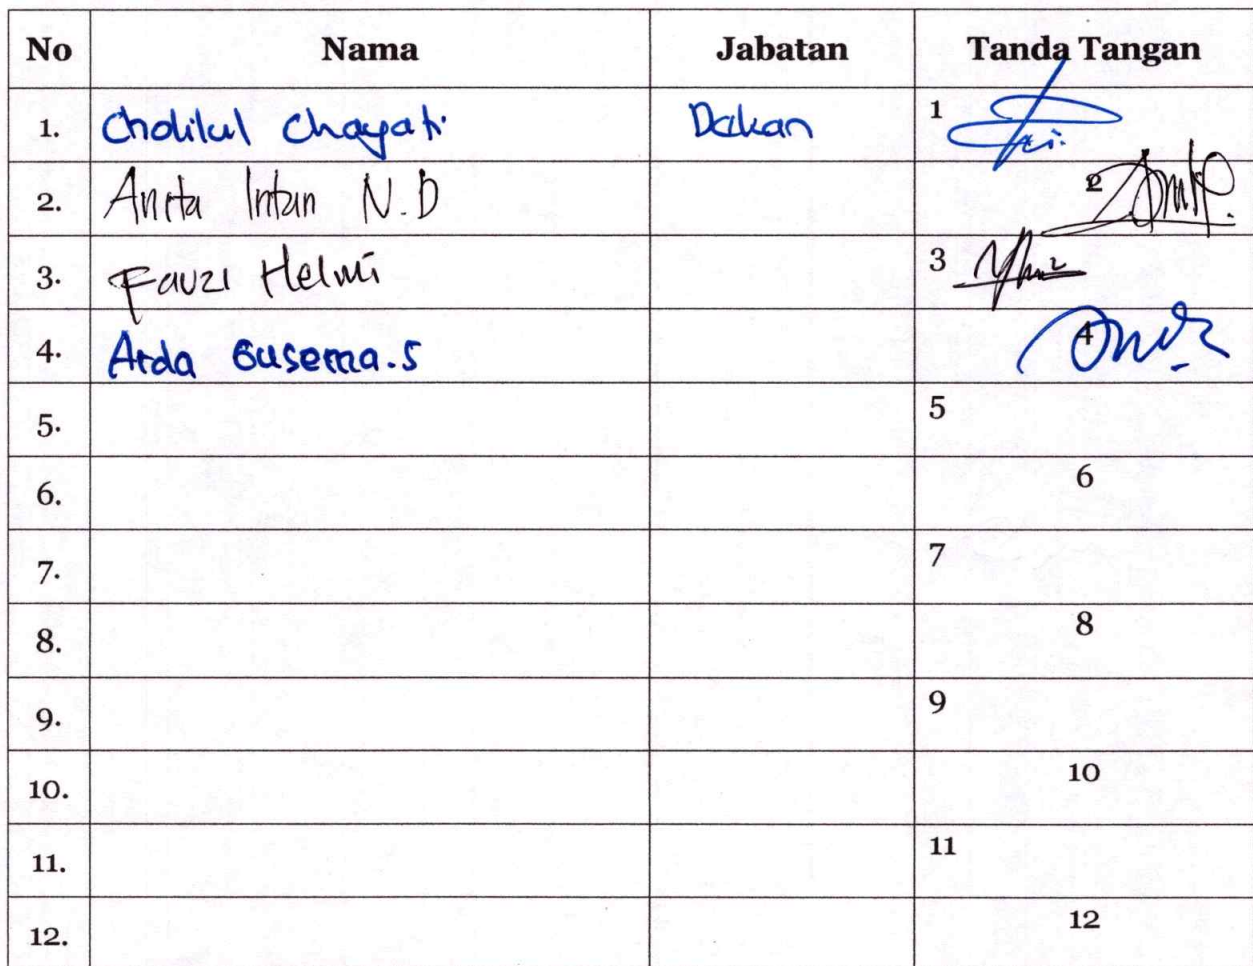 No Nama Jabatan Tanda Tangan
1. Cholilul Chayati Dekan 1
2. Anita Intan N.D 2
3. Fauzi Helmi 3
4. Arda 4
5. 5
6. 6
7. 7
8. 8
9. 9
10. 10
11. 11
12. 12